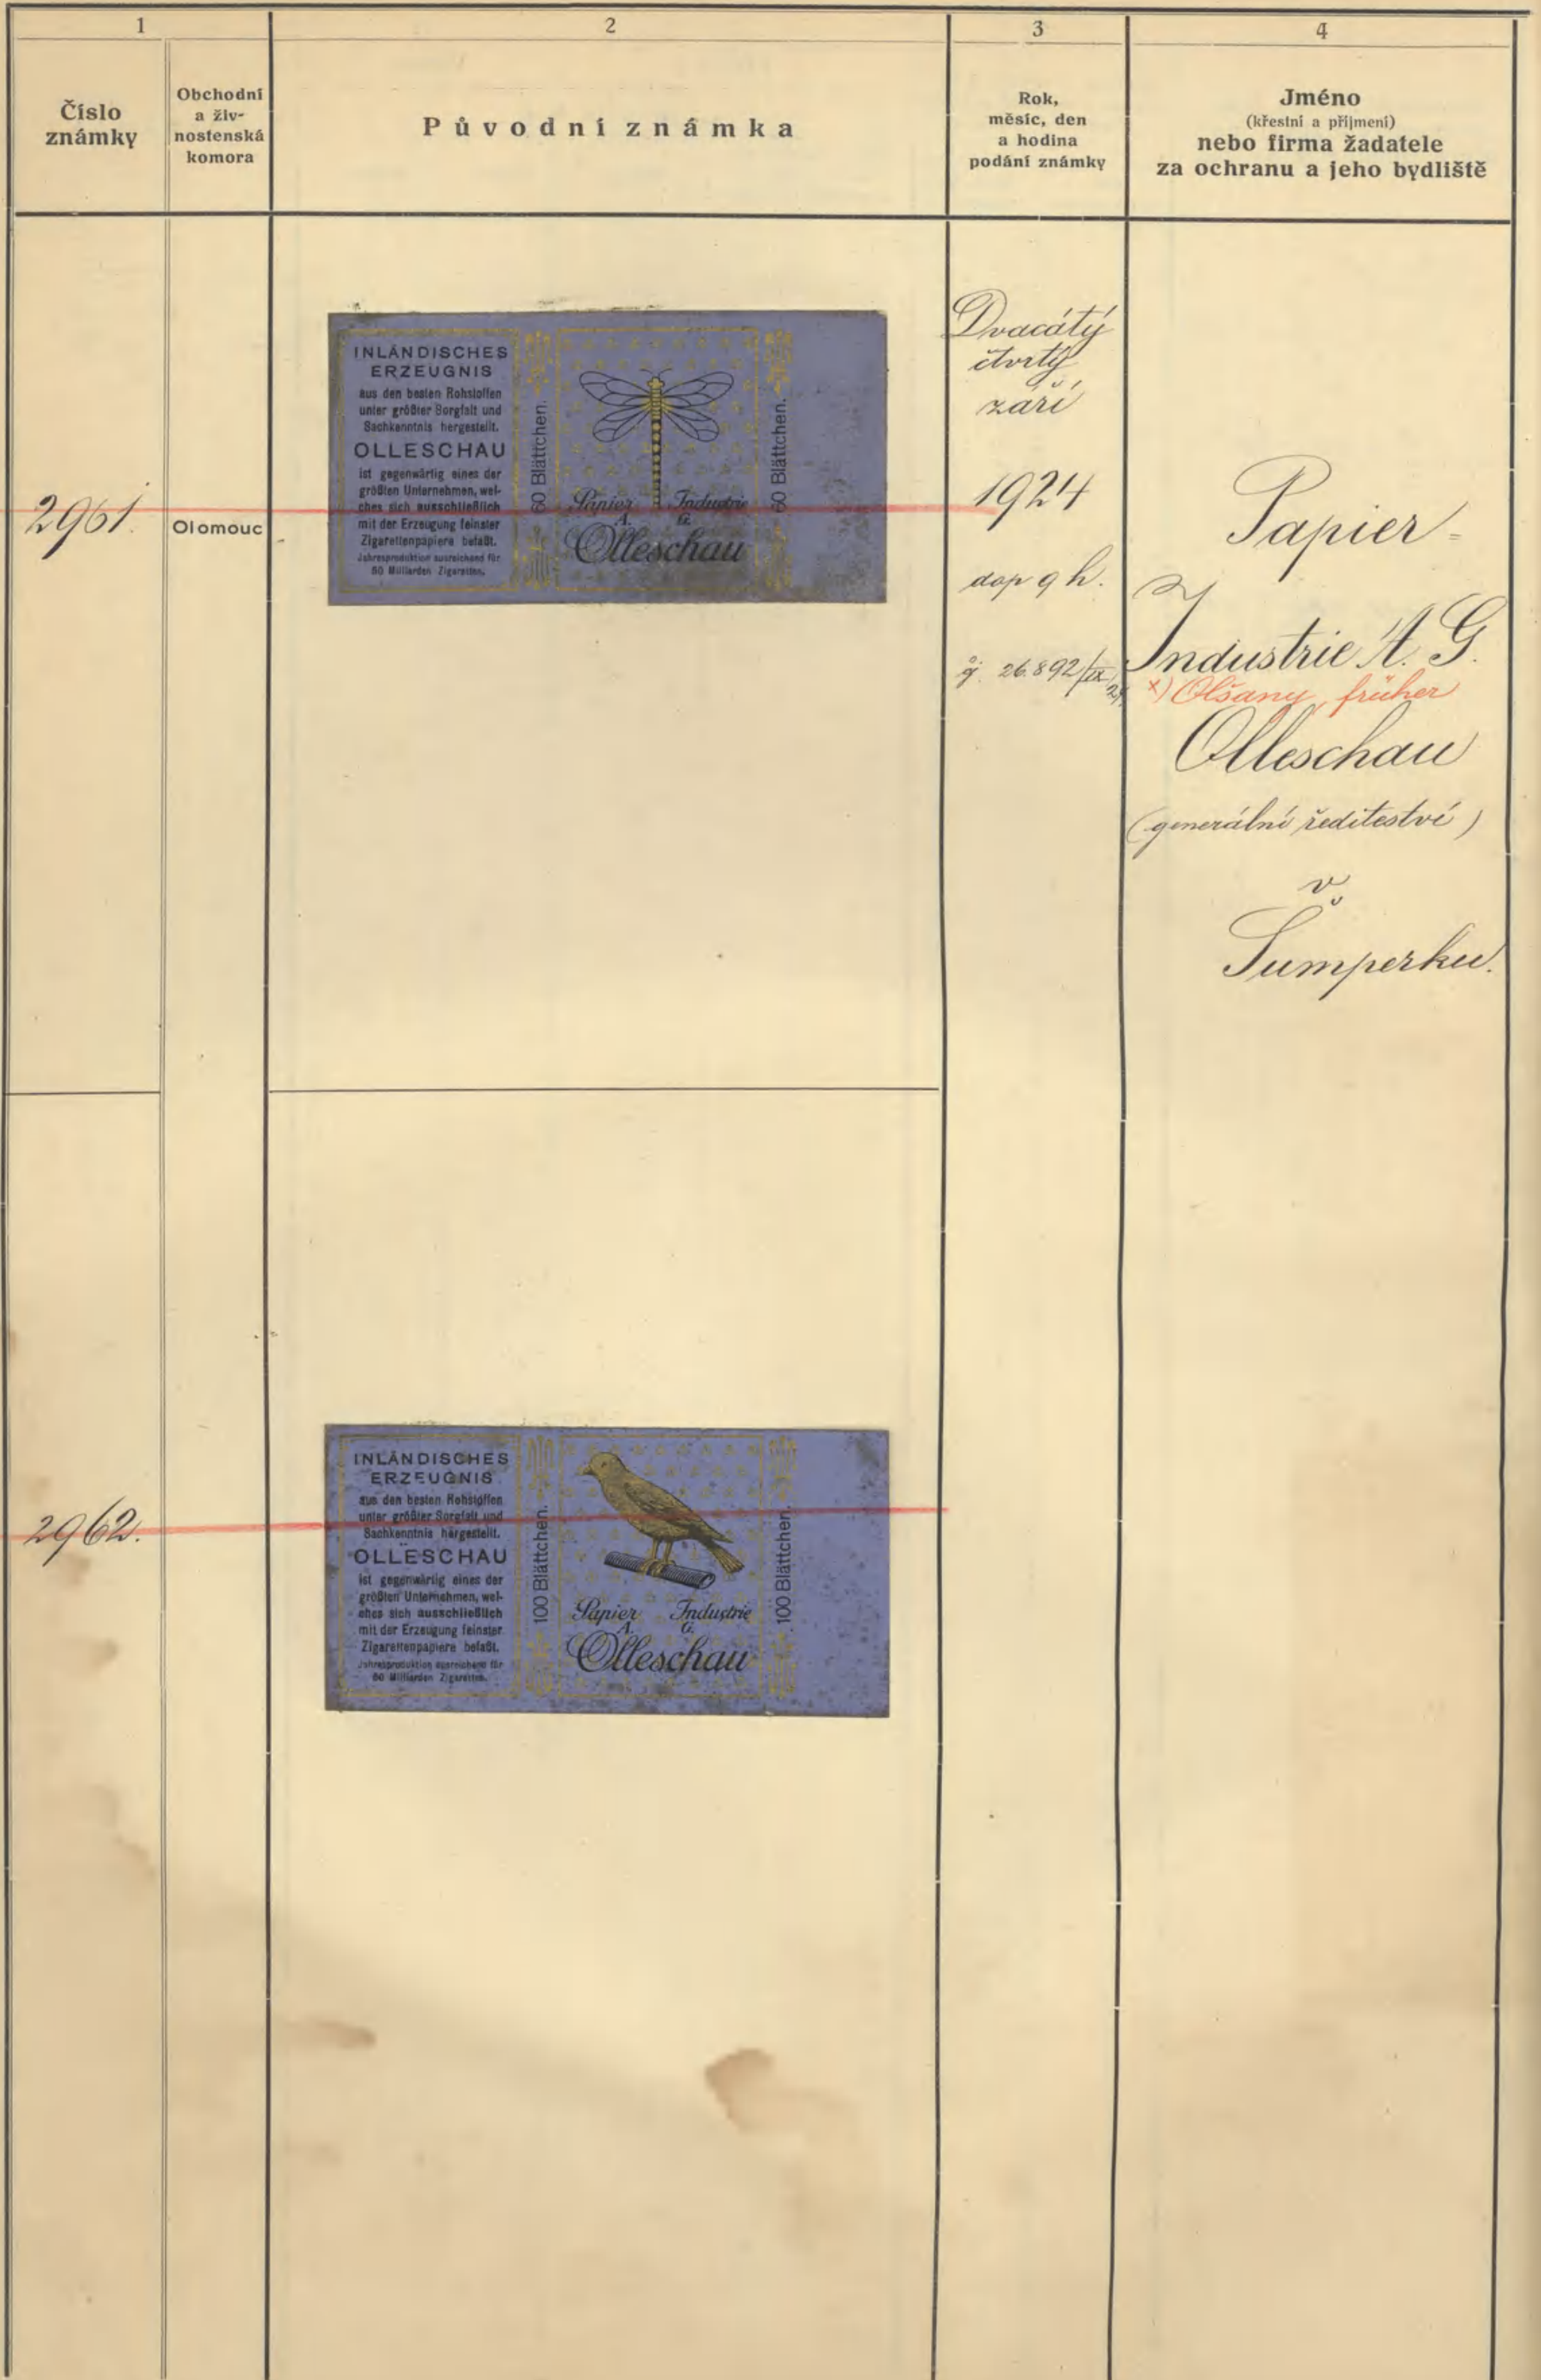 1
2
3
4
Číslo
známky
Obchodní
a živ-
nostenská
komora
Původní známka
Rok,
měsíc, den
a hodina
podání známky
Jméno
(křestní a příjmení)
nebo firma žadatele
za ochranu a jeho bydliště
2961.
Olomouc
INLÄNDISCHES
ERZEUGNIS
aus den besten Rohstoffen
unter größter Sorgfalt und
Sachkenntnis hergestellt.
OLLESCHAU
ist gegenwärtig eines der
größten Unternehmen, wel-
ches sich ausschließlich
mit der Erzeugung feinster
Zigarettenpapiere befaßt.
Jahresproduktion ausreichend für
60 Milliarden Zigaretten.
60 Blättchen.
Papier Industrie
A. G.
Olleschau
60 Blättchen.
Dvacátý
čtvrtý
září
1924
dop 9 h.
26.892/IX
Papier-
Industrie A. G.
x) Olšany, früher
Olleschau
(generální ředitelství)
v
Šumperku.
2962.
INLÄNDISCHES
ERZEUGNIS
aus den besten Rohstoffen
unter größter Sorgfalt und
Sachkenntnis hergestellt.
OLLESCHAU
ist gegenwärtig eines der
größten Unternehmen, wel-
ches sich ausschließlich
mit der Erzeugung feinster
Zigarettenpapiere befaßt.
Jahresproduktion ausreichend für
60 Milliarden Zigaretten.
100 Blättchen.
Papier Industrie
A. G.
Olleschau
100 Blättchen.